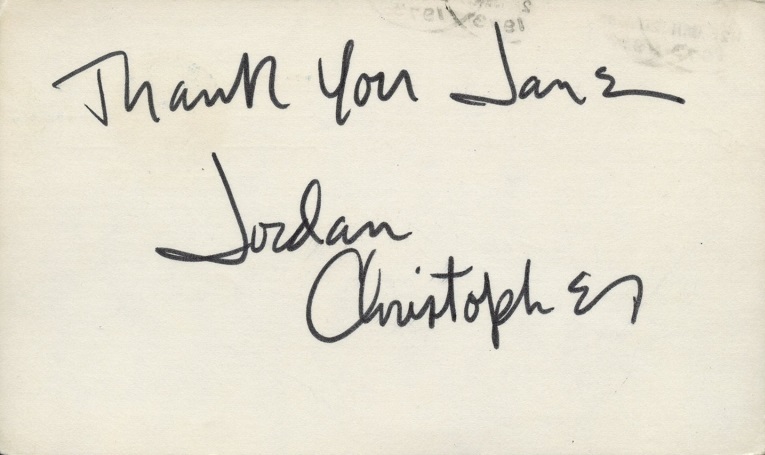 Thank You Jane
Jordan
Christopher